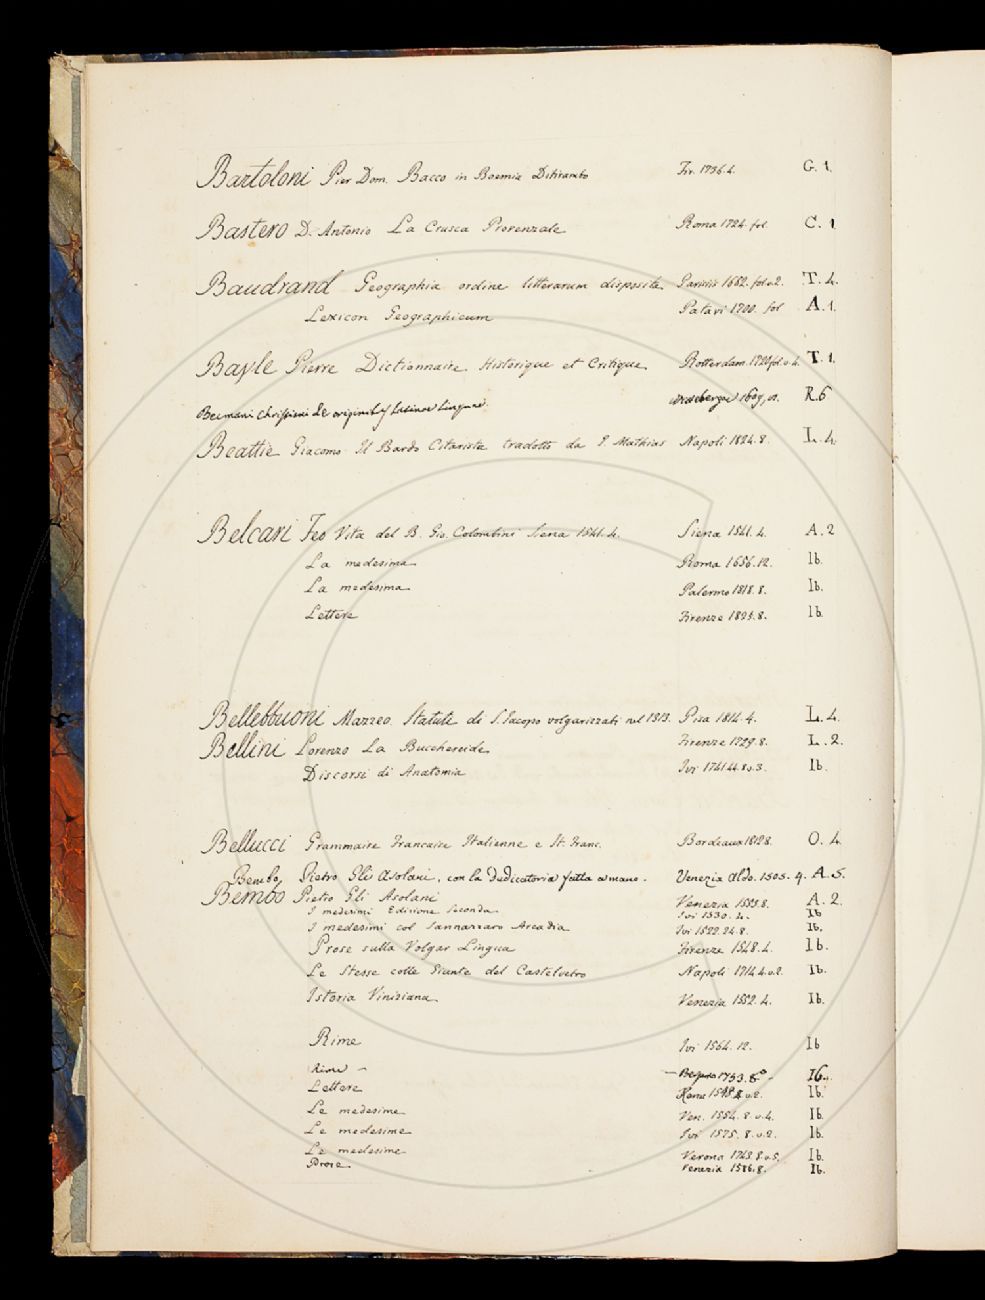 Bartoloni Pier Dom. Bacco in Boemia Ditirambo Fir. 1736. 4. G. 1.
Bastero D. Antonio La Crusca Provenzale Roma 1724. fol. C. 1
Baudrand Geographia ordine litterarum disposita Parisiis 1682. fol. v. 2. T. 4.
Lexicon Geographicum Patavi 1700. fol A. 1.
Bayle Pierre Dictionnaire Historique et Critique Rotterdam. 1720 fol. v. 4. T. 1.
Becmani Christiani de originibus Latinae Linguae 1609, R. 6
Beattie Giacomo Il Bardo Citarista tradotto da P. Mathias Napoli 1824. 8. L. 4.
Belcari Feo Vita del B. Gio. Colombini Siena 1541. 4. Siena 1541. 4. A. 2
La medesima Roma 1656. 12. Ib.
La medesima Palermo 1818. 8. Ib.
Lettere Firenze 1825. 8. Ib.
Bellebbuoni Mazzeo Statuti di S. Jacopo volgarizzati nel 1313. Pisa 1814. 4. L. 4.
Bellini Lorenzo La Bucchereide Firenze 1729. 8. L. 2.
Discorsi di Anatomia Ivi 1741.44. 8. v. 3. Ib.
Bellucci Grammaire Francaise Italienne e It. Franc. Bordeaux 1812 8. O. 4.
Bembo, Pietro Gli Asolani, con la Dedicatoria fatta a mano. Venezia Aldo. 1505. 4. A. 5.
Bembo Pietro Gli Asolani Venezia 1553. 8. A. 2.
I medesimi Edizione Seconda Ivi 1530. 4. Ib
I medesimi col Sannazzaro Arcadia Ivi 1522.24. 8. Ib.
Prose sulla Volgar Lingua Firenze 1548. 4. Ib.
Le Stesse colle Giunte del Castelvetro Napoli 1714. 4. v. 2. Ib.
Istoria Viniziana Venezia 1552. 4. Ib.
Rime Ivi 1564. 12. Ib
Rime – – 1753. 8.° – Ib.
Lettere Roma 1548. 4. v. 2. Ib.
Le medesime Ven. 1554. 8. v. 4. Ib.
Le medesime Ivi 1575. 8. v. 2. Ib.
Le medesime Verona 1743. 8. v. 5. Ib.
Prose Venezia 1586. 8. Ib.